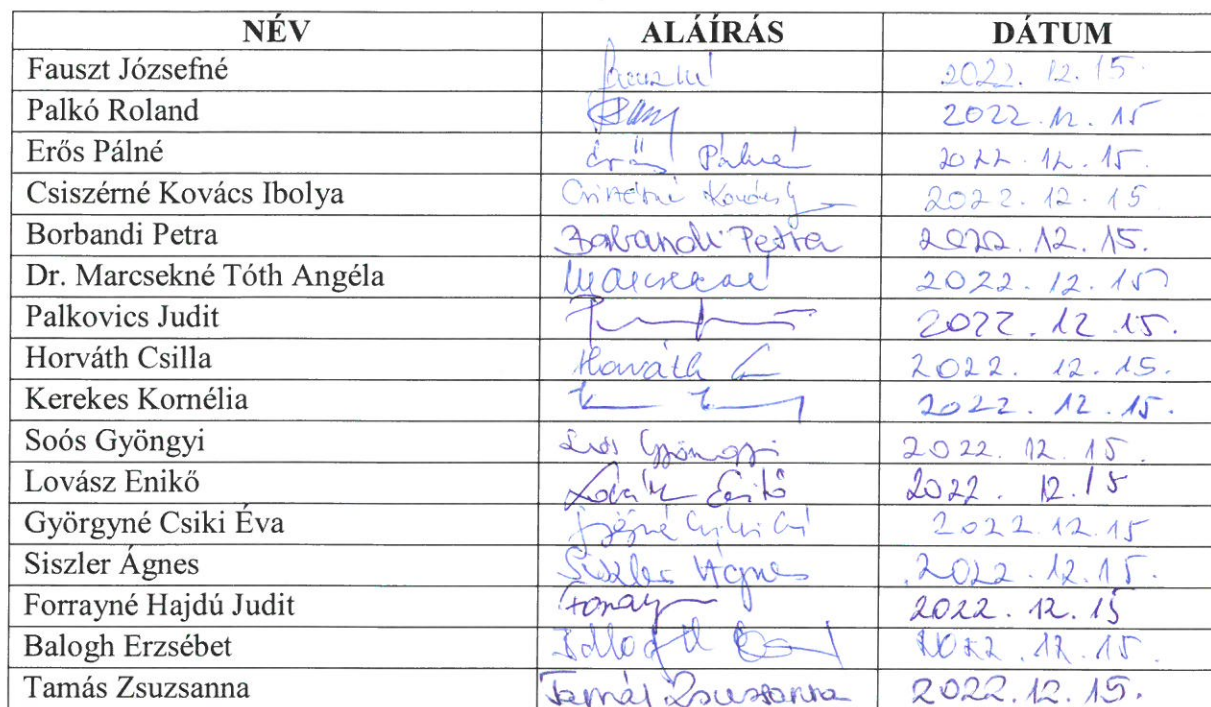 NÉV ALÁÍRÁS DÁTUM
Fauszt Józsefné 2022. 12. 15.
Palkó Roland 2022. 12. 15
Erős Pálné Erős Pálné 2022. 12. 15.
Csiszérné Kovács Ibolya Csiszérné Kovács I 2022. 12. 15.
Borbandi Petra Borbandi Petra 2022. 12. 15.
Dr. Marcsekné Tóth Angéla Marcsekné 2022. 12. 15
Palkovics Judit 2022. 12. 15.
Horváth Csilla Horváth 2022. 12. 15.
Kerekes Kornélia 2022. 12. 15.
Soós Gyöngyi Soós Gyöngyi 2022. 12. 15.
Lovász Enikő Lovász Enikő 2022. 12. 15
Györgyné Csiki Éva Györgyné Csiki Évi 2022. 12. 15
Siszler Ágnes Siszler Ágnes 2022. 12. 15.
Forrayné Hajdú Judit 2022. 12. 15
Balogh Erzsébet Balogh 2022. 12. 15.
Tamás Zsuzsanna Tamás Zsuzsanna 2022. 12. 15.